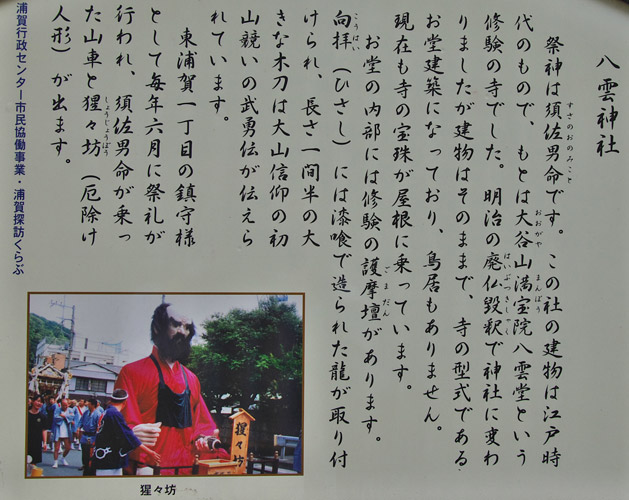 八雲神社
祭神は須佐男命です。この社の建物は江戸時
すさのおのみこと
代のもので、もとは大谷山満宝院八雲堂という
おおがや まんぽう
修験の寺でした。明治の廃仏毀釈で神社に変わ
はいぶつきしゃく
りましたが建物はそのままで、寺の型式である
お堂建築になっており、鳥居もありません。
現在も寺の宝珠が屋根に乗っています。
お堂の内部には修験の護摩壇があります。
ごまだん
向拝（ひさし）には漆喰で造られた龍が取り付
こうはい
けられ、長さ一間半の大
きな木刀は大山信仰の初
山競いの武勇伝が伝えら
れています。
東浦賀一丁目の鎮守様
として毎年六月に祭礼が
行われ、須佐男命が乗っ
た山車と猩々坊（厄除け
しょうじょうぼう
人形）が出ます。
浦賀行政センター市民協働事業・浦賀探訪くらぶ
猩々坊
猩々坊